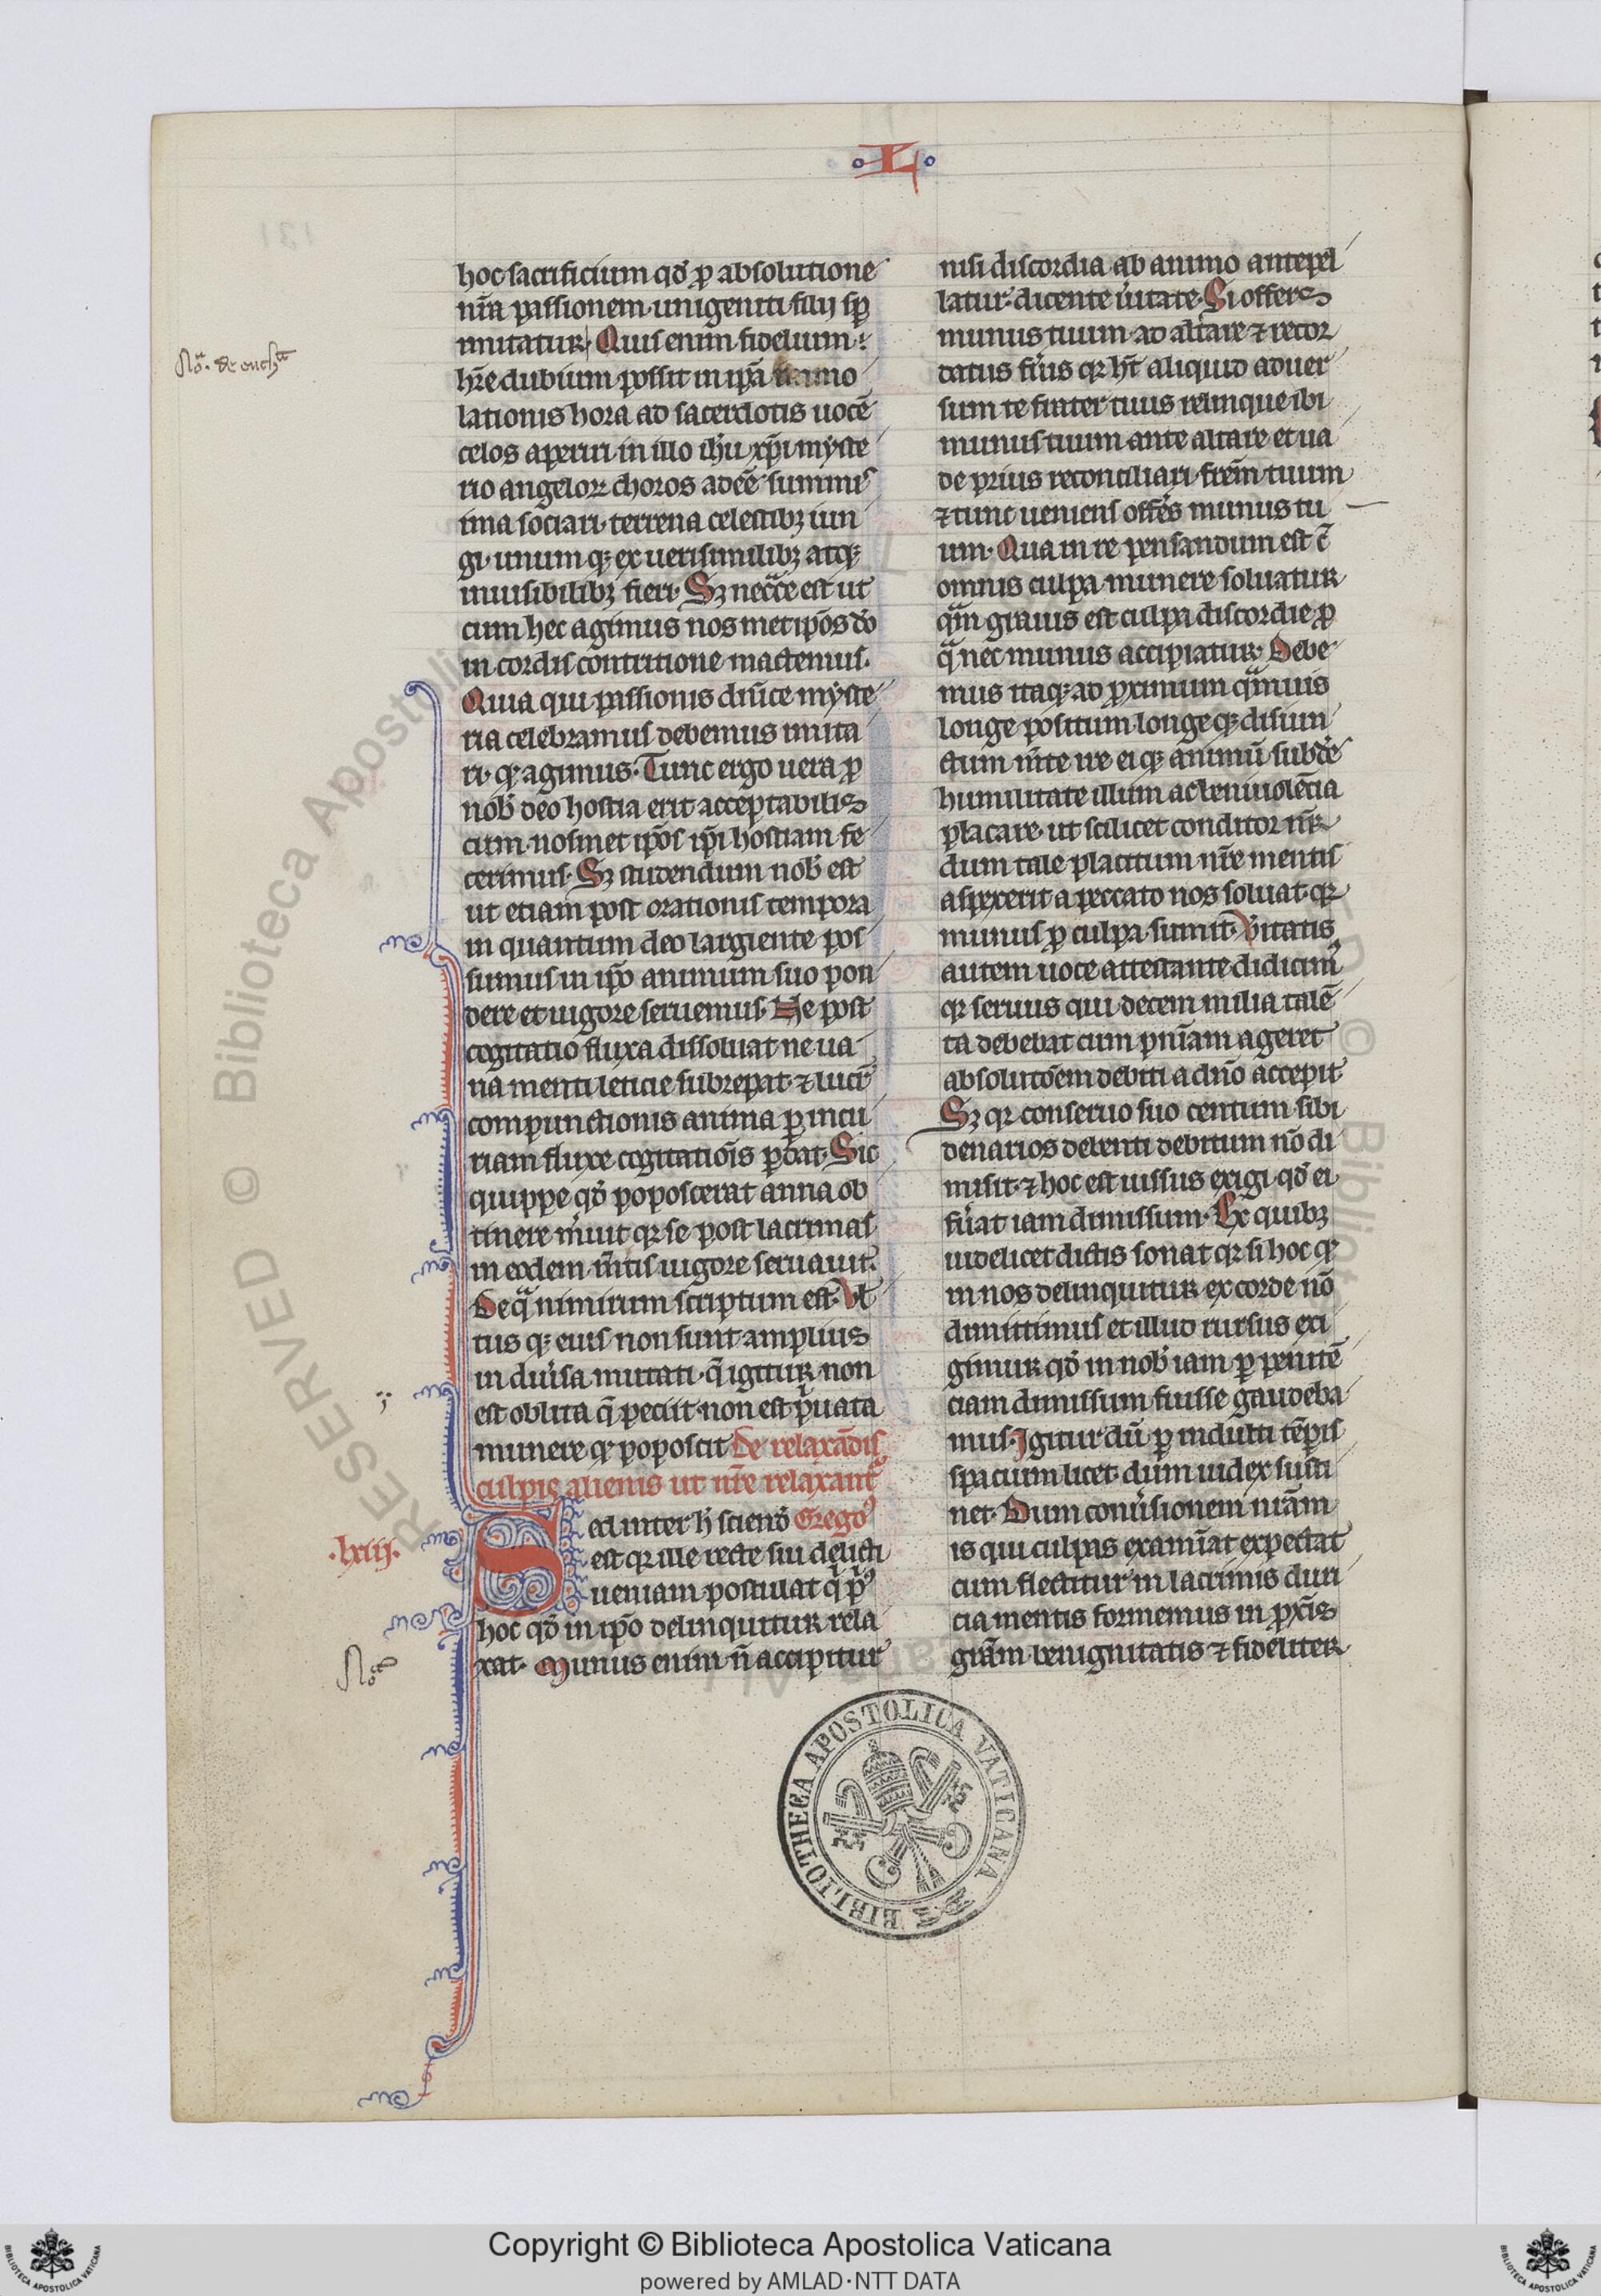 L
hoc sacrificium qđ ꝓ absolutione
nr̄a passionem unigeniti filij sp̄
mutatur. Quis enim fidelium
hr̄e dubium possit in ip̄a immo
lationis hora ad sacerdotis uocē
celos aperiri in illo ih̄u xp̄i myste
rio angeloꝝ choros adeē summis
ima sociari terrena celestibꝫ iun
gi unum qꝫ ex uerisimilibꝫ atqꝫ
inuisibilibꝫ fieri. Sꝫ necc̄e est ut
cum hec agimus nosmetip̄os dō
in cordis contritione mactemus.
Quia qui passionis dnīce myste
ria celebramus debemus imita
ri qꝫ agimus. Tunc ergo uera ꝓ
nob̄ deo hostia erit acceptabilis
cum nosmet ip̄os ip̄i hostiam fe
cerimus. Sꝫ studendum nob̄ est
ut etiam post orationis tempora
in quantum deo largiente pos
sumus in ip̄o animum suo pon
dere et uigore seruemus. Ne post
cogitatio fluxa dissoluat ne ua
na menti leticie subrepat ⁊ lucr̄
compunctionis anima ꝑ incu
riam fluxe cogitatiōis ꝑdat. Sic
quippe qđ poposcerat anna ob
tinere m̄uit qꝛ se post lacrimas
in eodem m̄tis uigore seruauit.
De qͣ nimirum scriptum est. Vl̄
tus qꝫ eius non sunt amplius
in diu̾sa mutati. q̄ igitur non
est oblita q̄ peciit non est pͥuata
munere qꝫ poposcit De relaxādis
culpis alienis ut nr̄e relaxantᷣ
.lxiij.
Sed inter h̄ sciend̄ Grego⁹
est qꝛ ille recte sui delicti
ueniam postulat qͥ pͥ⁹
hoc qđ in ip̄o delinquitur rela
xat. Munus enim n̄ accipitur
nisi discordia ab animo antepel
latur dicente ueritate. Si offers
munus tuum ad altare ⁊ recor
datus fu̾is qꝛ h̄t aliquid aduer
sum te frater tuus relinque ibi
munus tuum ante altare et ua
de prius reconciliari fr̄em tuum
⁊ tunc ueniens offe̾s munus tu
um. Qua in re pensandum est c̄
omnis culpa munere soluatur
qͣm grauis est culpa discordie ꝓ
qͣ nec munus accipiatur. Debe
mus itaqꝫ ad ꝓximum qͣmuis
longe positum longeqꝫ disiun
ctum m̄te ire eiqꝫ animū subde̾
humilitate illum ac beniuolētia
placare ut scilicet conditor nr̄
dum tale placitum nr̄e mentis
aspexerit a peccato nos soluat qꝛ
munus ꝓ culpa sumit. Ue̾itatis
autem uoce attestante didicim⁹
qꝛ seruus qui decem milia talē
ta debebat cum pn̄iam ageret
absolutōem debiti a dn̄o accepit
Sꝫ qꝛ conseruo suo centum sibi
denarios debenti debitum nō di
misit ⁊ hoc est iussus exigi qđ ei
fu̾at iam dimissum. Ex quibꝫ
uidelicet dictis sonat qꝛ si hoc qꝫ
in nos delinquitur ex corde nō
dimittimus et illud rursus exi
gimur qđ in nob̄ iam ꝑ penitē
ciam dimissum fuisse gaudeba
mus. Igitur dū ꝑ indulti tēpis
spacium licet dum iudex susti
net. Dum conu̾sionem nr̄am
is qui culpas examīat expectat
cum flectitur in lacrimis duri
cia mentis formemus in ꝓxīs
gr̄am benignitatis ⁊ fideliter
BIBLIOTHECA APOSTOLICA VATICANA
RESERVED © Biblioteca Apostolica
Copyright © Biblioteca Apostolica Vaticana
powered by AMLAD·NTT DATA